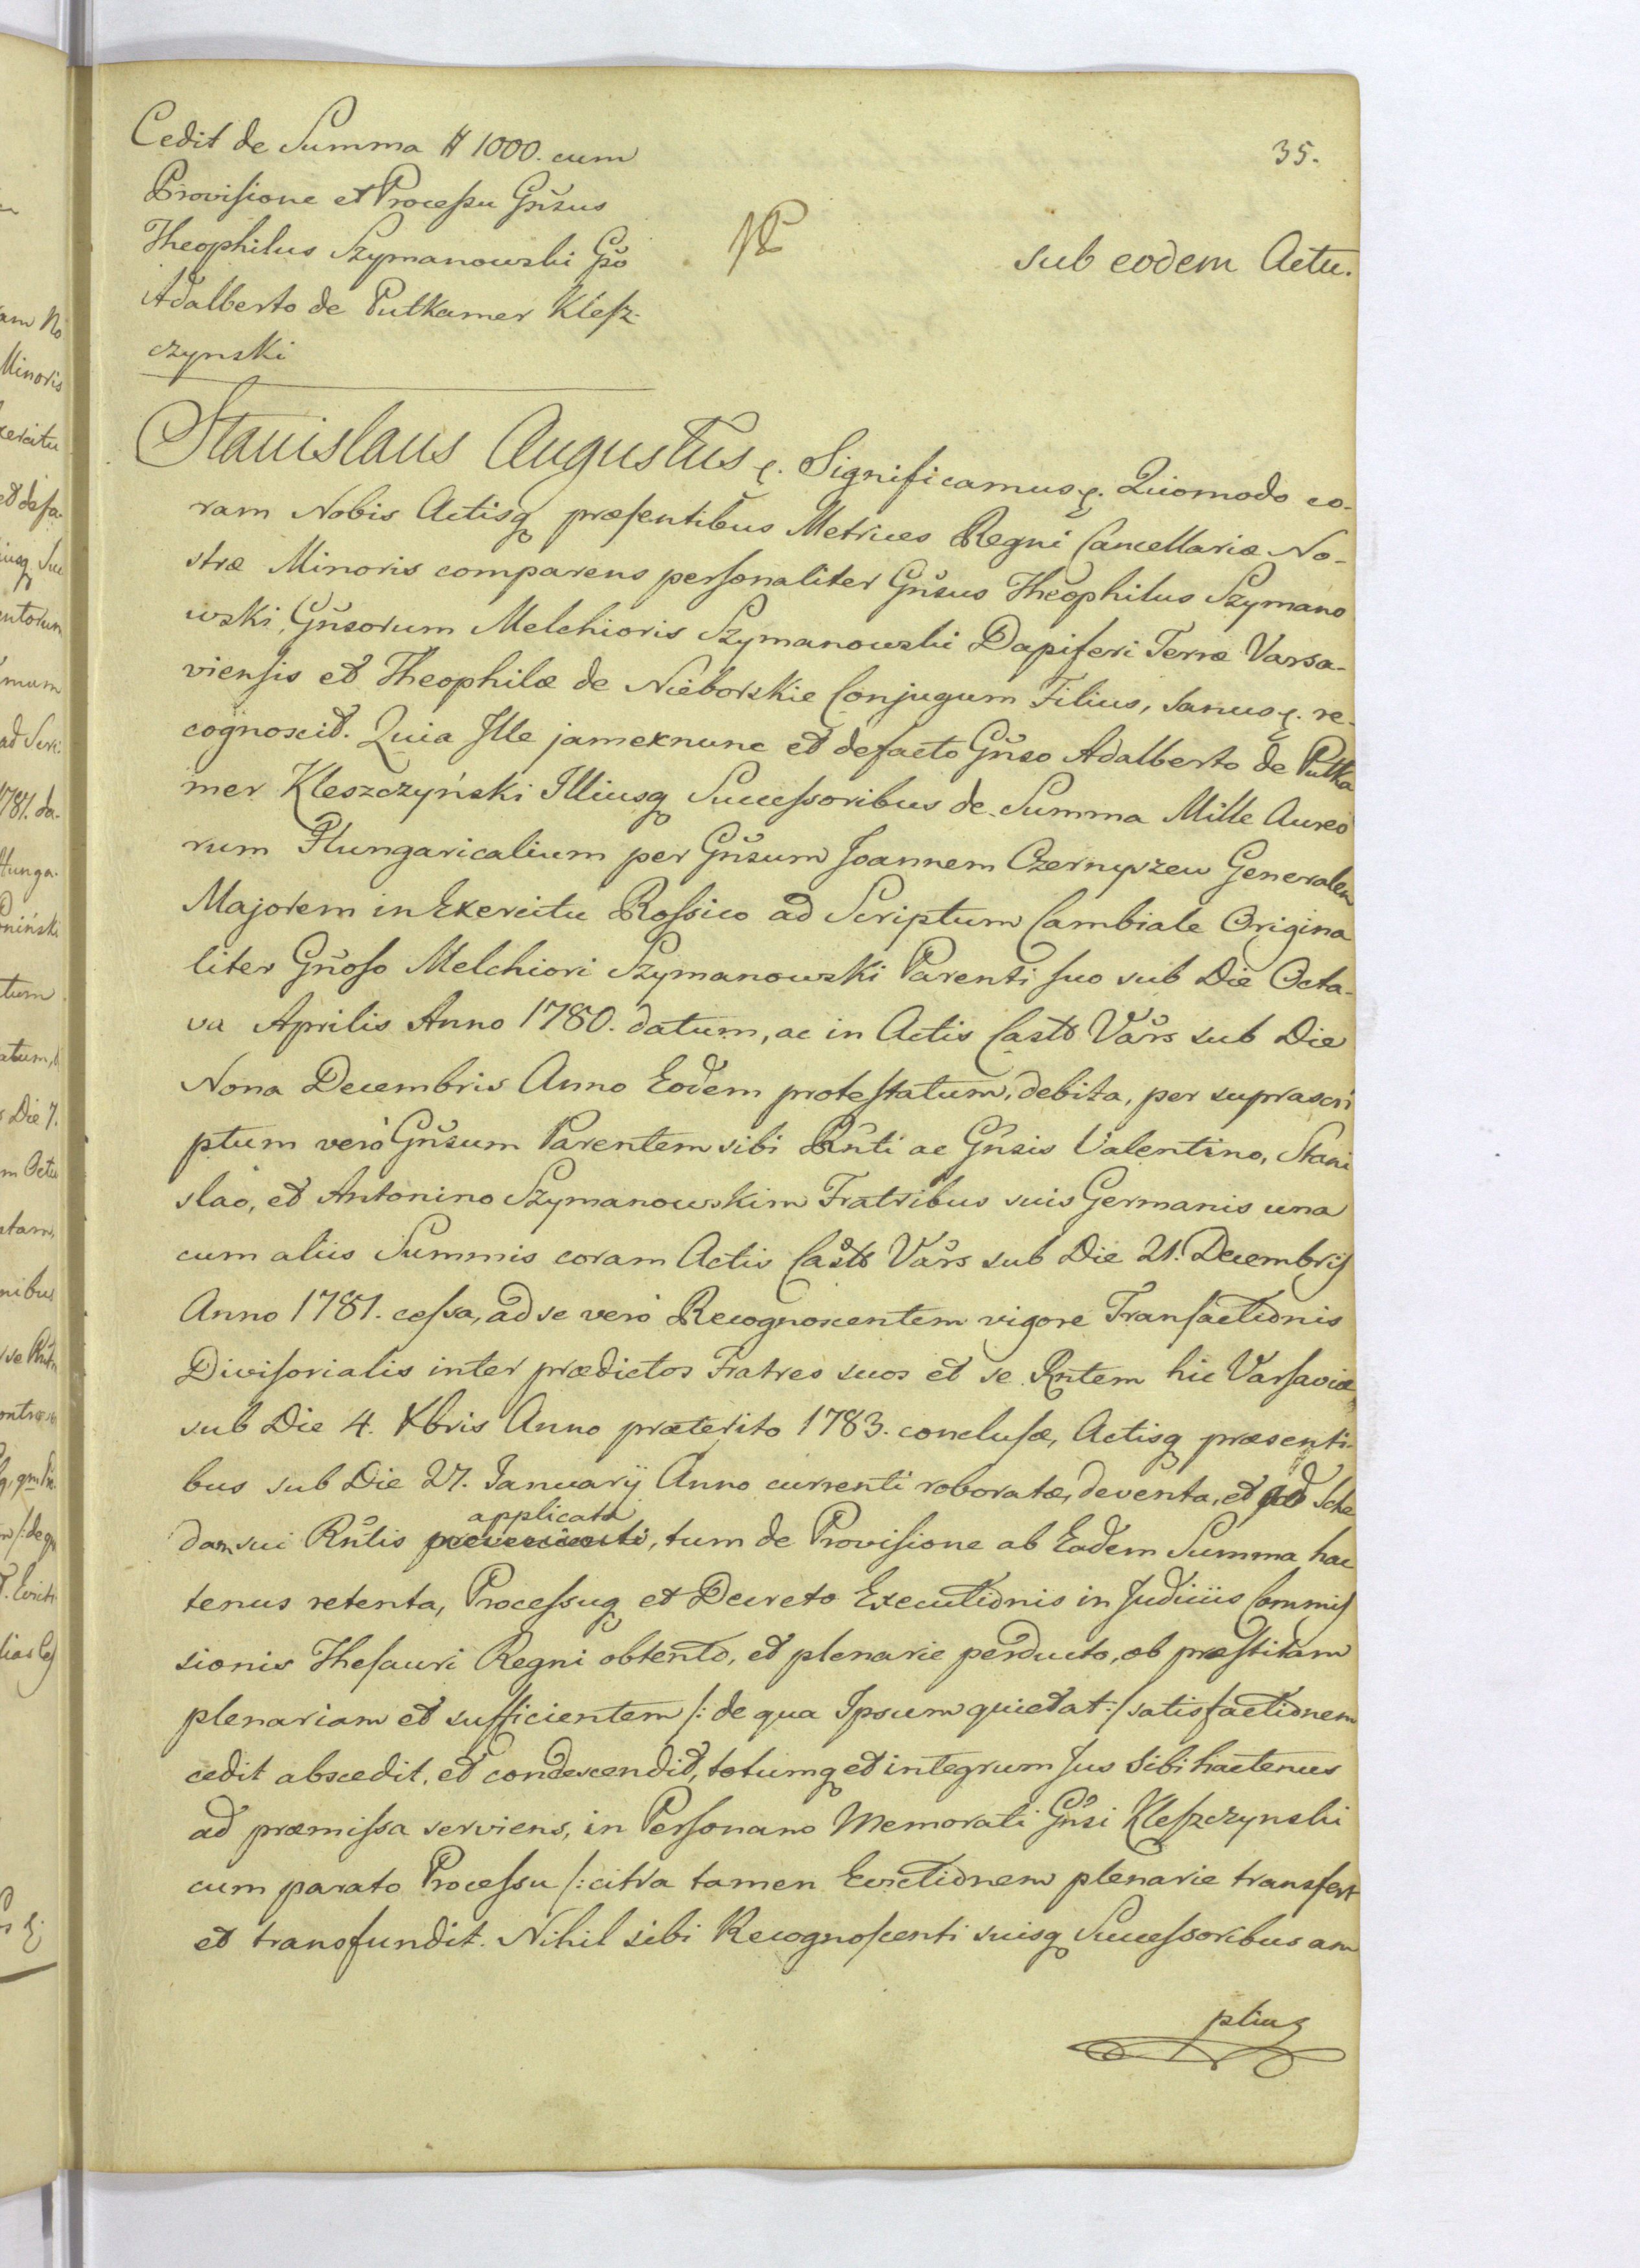 35.
Cedit de Summa # 1000. cum
Provisione et Processu Gñsus
Theophilus Szymanowski Gso
Adalberto de Putkamer Klesz-
czynski
sub eodem Actu.
Stanislaus Augustus &. Significamus &. Quomodo co-
ram Nobis Actisq præsentibus Metrices Regni Cancellariæ No-
stræ Minoris comparens personaliter Gñsus Theophilus Szymano
wski, Gñsorum Melchioris Szymanowski Dapiferi Terræ Varsa-
viensis et Theophilæ de Nieborskie Conjugum Filius, sanus &. re-
cognoscit. Quia Ille jamexnunc et defacto Gñso Adalberto de Putka
mer Kleszczyński Illiusq Successoribus de Summa Mille Aureo
rum Hungaricalium per Gñsum Joannem Czernyszew Generalem
Majorem in Exercitu Rossico ad Scriptum Cambiale Origina
liter Gñoso Melchiori Szymanowski Parenti suo sub Die Octa-
va Aprilis Anno 1780. datum, ac in Actis Castr̃ Vars̃ sub Die
Nona Decembris Anno Eodem protestatum, debita, per suprascri
ptum verò Gñsum Parentem sibi Rñti ac Gñsis Valentino, Stani
slao, et Antonino Szymanowskim Fratribus suis Germanis una
cum aliis Summis coram Actis Castr̃ Vars̃ sub Die 21. Decembris
Anno 1781. cessa, ad se verò Recognoscentem vigore Transactionis
Divisorialis inter prædictos Fratres suos et se Rntem hic Varsaviæ
sub Die 4. Xbris Anno præterito 1783. conclusæ, Actisq præsenti-
bus sub Die 27. Januarij Anno currenti roboratæ, deventa, et ad Sche
applicata
dam sui Rñtis , tum de Provisione ab Eadem Summa hac
tenus retenta, Processuq et Decreto Executionis in Judiciis Commis
sionis Thesauri Regni obtento, et plenarie perducto, ob præstitam
plenariam et sufficientem /: de qua Ipsum quietat :/ satisfactionem
cedit abscedit, et condescendit, totumq et integrum Jus sibi hactenus
ad præmissa serviens, in Personam Memorati Gñsi Kleszczynski
cum parato Processu /: citra tamen Evictionem plenarie transfert
et transfundit. Nihil sibi Recognoscenti suisq Successoribus am
plius